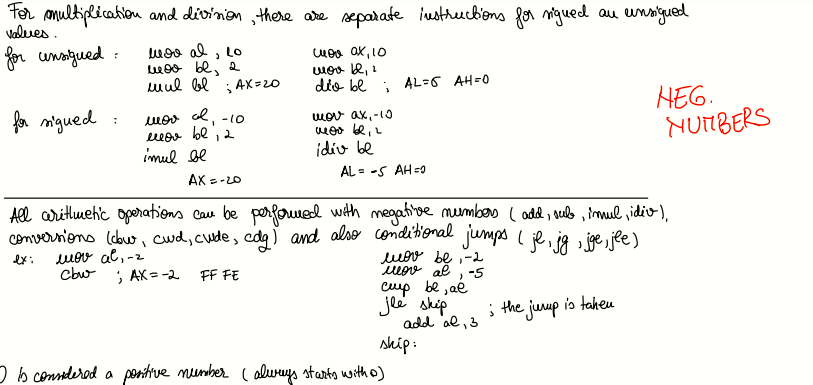 For multiplication and division, there are separate instructions for signed an unsigned
values.
for unsigned : mov al, 10 mov ax, 10
mov bl, 2 mov bl, 2
mul bl ; AX=20 div bl ; AL=5 AH=0
NEG.
NUMBERS
for signed : mov al, -10 mov ax, -10
mov bl, 2 mov bl, 2
imul bl idiv bl
AX = -20 AL = -5 AH=0
All arithmetic operations can be performed with negative numbers (add, sub, imul, idiv),
conversions (cbw, cwd, cwde, cdq) and also conditional jumps (jl, jg, jge, jle)
ex: mov al, -2 mov bl, -2
cbw ; AX = -2 FF FE mov al, -5
cmp bl, al
jle skip ; the jump is taken
add al, 3
skip:
0 is considered a positive number (always starts with 0)